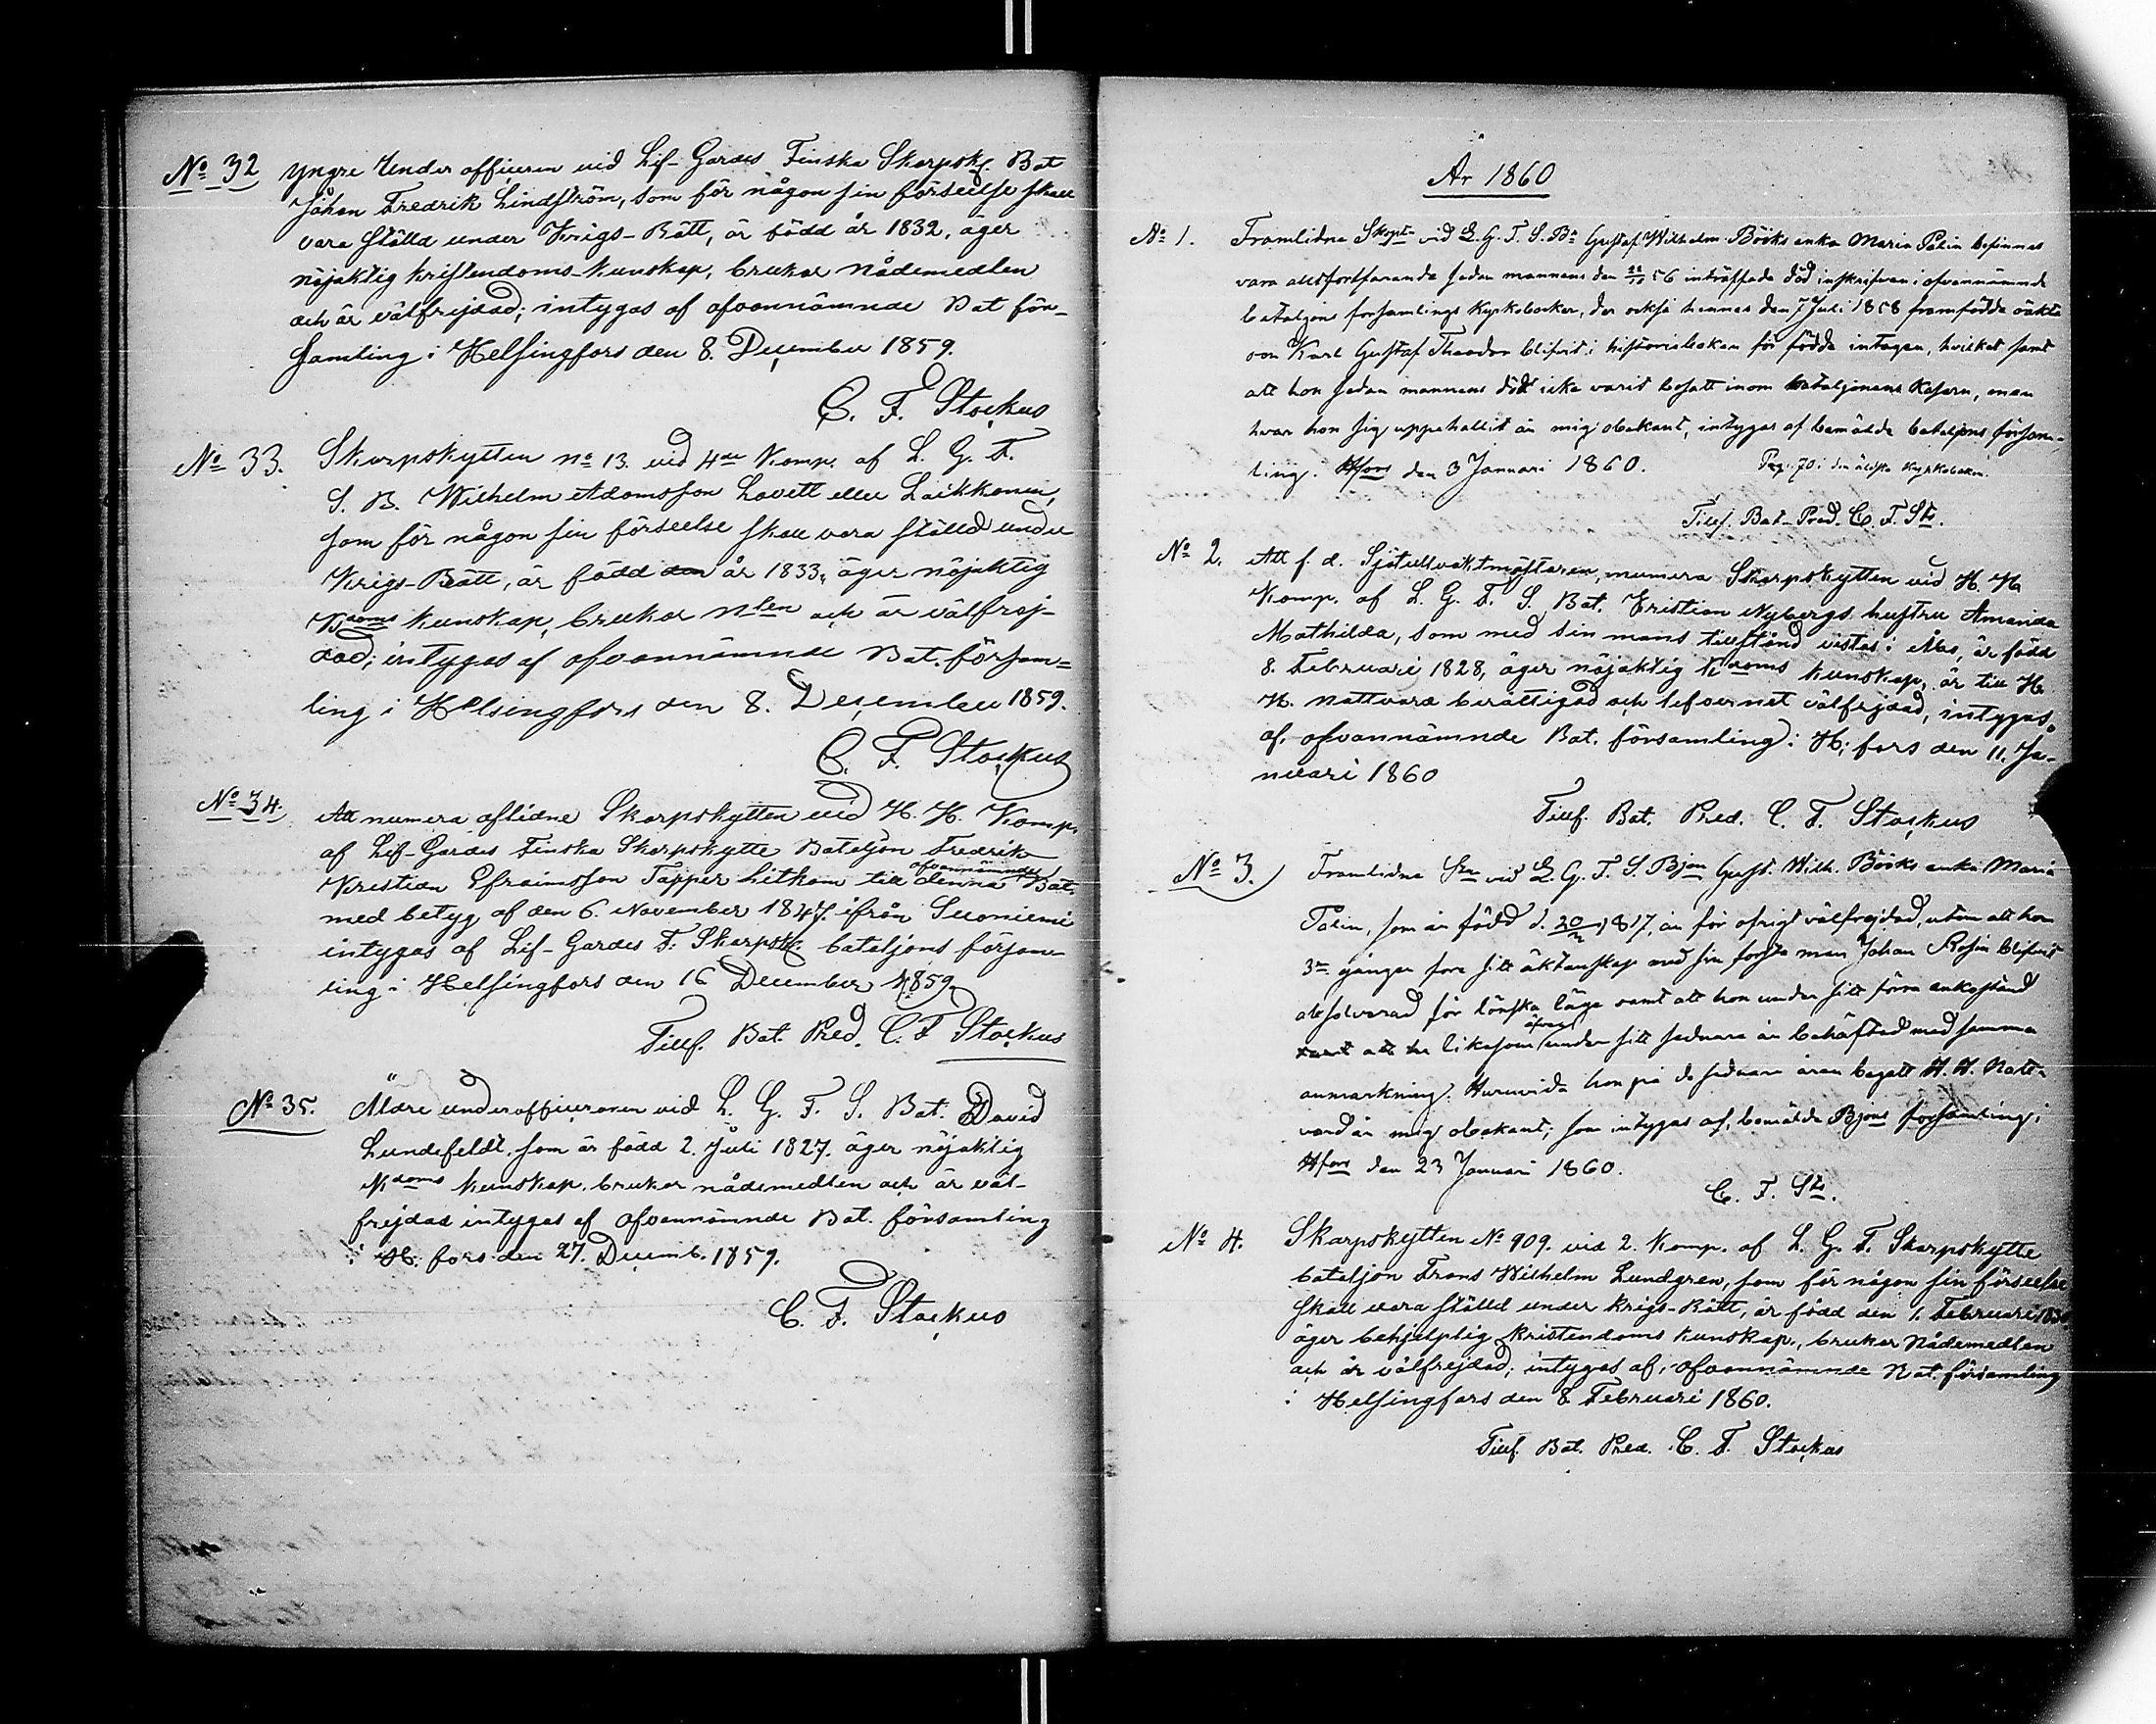 No 32 Yngre Under officeren vid Lif-Gardes Finska Skarpsk. Bat
Johan Fredrik Lindström, som för någon sin förseelse skall
vara ställd under Krigs-Rätt, är född år 1832, äger
nöjaktig kristendoms-kunskap, brukar nådemedlen
och är välfrejdad; intygas af ofvannämnde Bat för-
samling i Helsingfors den 8. December 1859.
C. F. Stockus
No 33. Skarpskytten no 13. vid 4de Komp. af L. G. F.
S. B. Wilhelm Adamsson Lovett eller Laikkonen,
som för någon sin förseelse skall vara ställd under
Krigs-Rätt, är född den år 1833, äger nöjaktig
Kdoms kunskap, brukar Nlen och är välfrej-
dad; intygas af ofvannämnde Bat. försam-
ling i Helsingfors den 8. December 1859.
C. F. Stockus
No 34. Att numera aflidne Skarpskytten vid H. H. Komp.
af Lif-Gardes Finska Skarpskytte Bataljon Fredrik
Kristian Efraimsson Tapper hitkom till denna ofvannämnde Bat.
med betyg af den 6. November 1847. ifrån Suoniemi
intygas af Lif-Gardes F. Skarpsk. bataljons försam-
ling i Helsingfors den 16 December 1859.
Tillf. Bat. Pred. C. F Stockus
No 35. Äldre underofficeraren vid L. G. F. S. Bat. David
Lundefeldt, som är född 2. Juli 1827. äger nöjaktig
Kdoms kunskap, brukar nådemedlen och är väl-
frejdad intygas af ofvannämnde Bat. församling
i H. fors den 27. Decemb. 1859.
C. F. Stockus
År 1860
No 1. Framlidne Skpt vid L. G. F. S. Bn Gustaf Wilhelm Bööks enka Maria Palin befinnes
vara alltfortfarande sedan mannens den 56 inträffade död inskrifven i ofvannämnde
bataljons församlings Kyrkobocker, der också hennes den 7 Juli 1858 framfödda oäkta
son Karl Gustaf Theodor blifvit i historieboken för födde intagen, hvilket samt
att hon sedan mannens död icke varit bosatt inom bataljonens Kasern, men
hvar hon sig uppehållit är mig obekant, intygas af bemälde bataljons försam-
ling i Hfors den 3 Januari 1860. Pag. 70 i den äldsta kyrkoboken.
Tillf. Bat-Pred. C. F. Sts.
No 2. Att f. d. Sjötullvaktmästaren, numera Skarpskytten vid H. H.
Komp. af L. G. F. S. Bat. Kristian Nybergs hustru Amanda
Mathilda, som med sin mans tillstånd vistas i Åbo, är född
8. Februari 1828, äger nöjaktig Kdoms kunskap, är till H.
H. Nattvard berättigad och lefvernet välfrejdad, intygas
af ofvannämnde Bat. församling i H:fors den 11. Ja-
nuari 1860
Tillf. Bat. Pred. C. F. Stockus
No 3. Framlidne Skn vid L. G. F. S. Bjon Gust. Wilh. Bööks enka Maria
Palin, som är född d. 1817, är för öfrigt välfrejdad, utom att hon
3ne gånger före sitt äktenskap med sin första man Johan Rosin blifvit
absolverad för lönska läge samt att hon under sitt förra enkestånd
likasom äfven under sitt sednare är behäftad med samma
anmärkning. Huruvida hon på de sednare åren begått H. H. Natt-
vard är mig obekant; som intygas af bemälde Bjons församling i
Hfors den 23 Januari 1860.
C. F. Sts.
No 4. Skarpskytten No 909. vid 2. Komp. af L. G. F. Skarpskytte
bataljon Frans Wilhelm Lundgren, som för någon sin förseelse
skall vara ställd under Krigs-Rätt, är född den 1. Februari
äger behjelplig kristendoms kunskap, brukar Nådemedlen
och är välfrejdad; intygas af ofvannämnde Bat. församling
i Helsingfors den 8. Februari 1860.
Tillf. Bat. Pred. C. F. Stockus